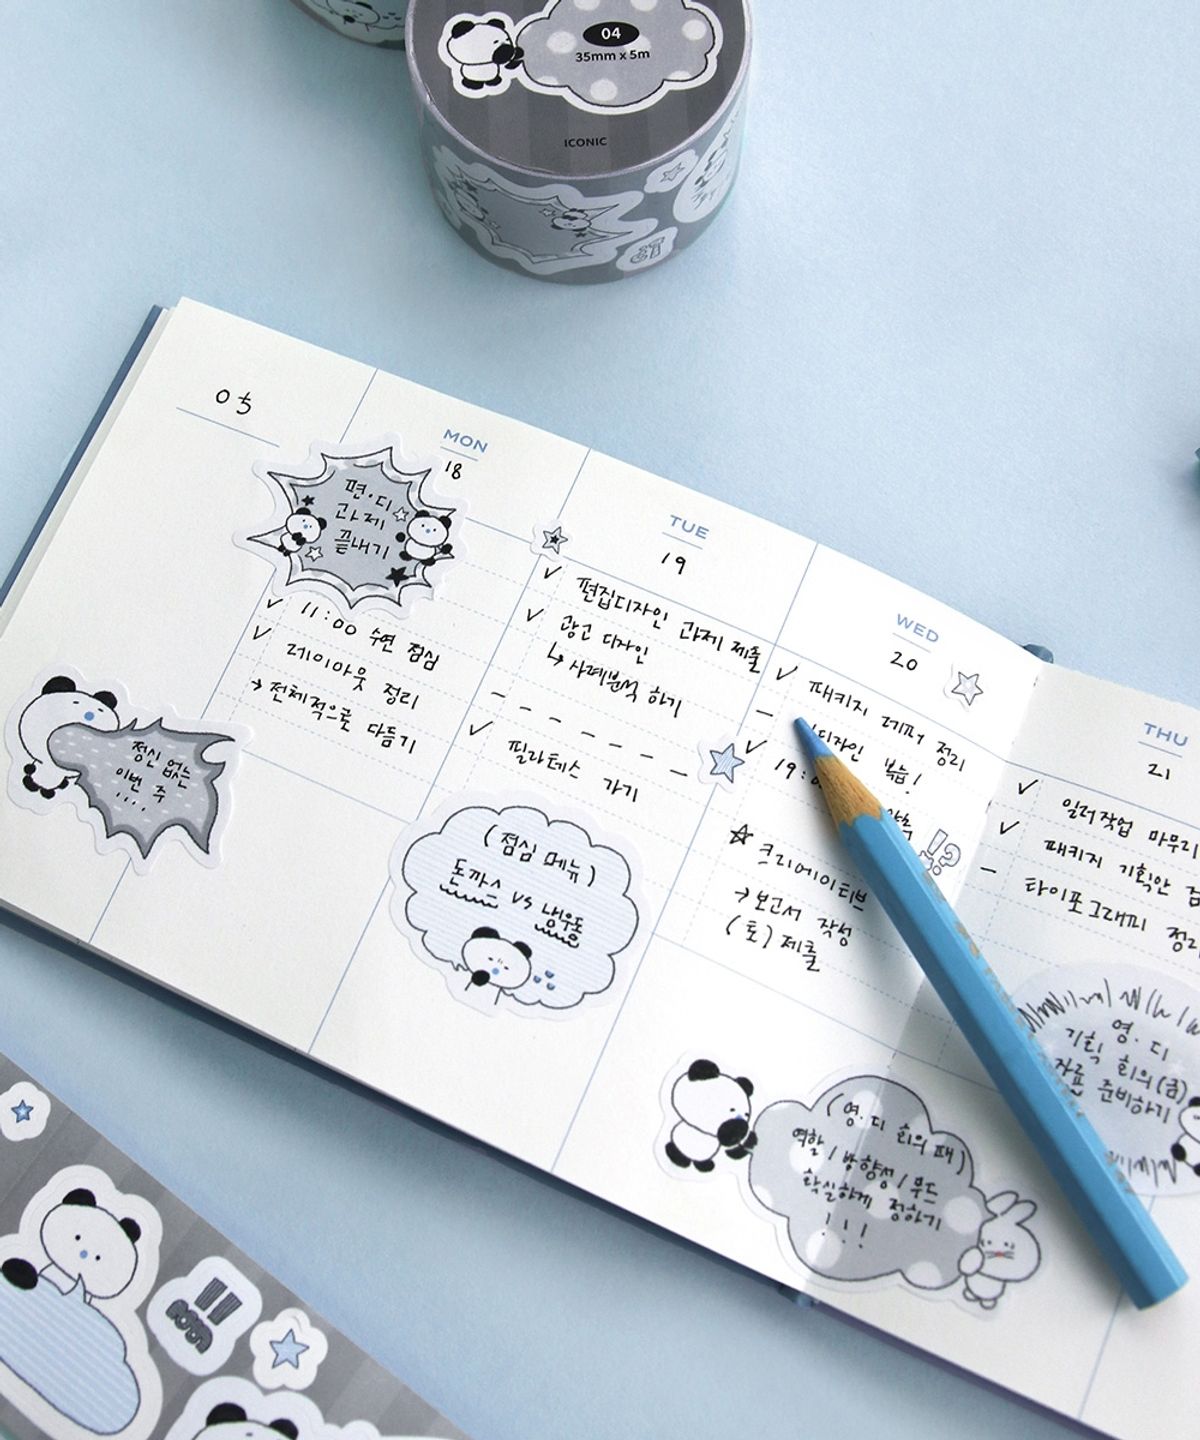 04
35mm x 5m
ICONIC
05
MON
18
편·디
과제
끝내기
✓ 11:00 수연 점심
✓ 레이아웃 정리
→ 전체적으로 다듬기
정신 없는
이번 주
....
TUE
19
✓ 편집디자인 과제 제출
✓ 광고 디자인
↳ 사례분석 하기
- - - - - - -
✓ 필라테스 가기
(점심 메뉴)
돈까스 vs 냉우동
WED
20
✓ 패키지 레퍼 정리
- 디자인 복습!
✓ 19:
!?
☆ 크리에이티브
→ 보고서 작성
(토) 제출
(영·디 회의 때)
역할 / 방향성 / 무드
확실하게 정하기
!!!
THU
21
✓ 일러작업 마무리
✓ 패키지 기획안
- 타이포그래피 정리
영·디
기획 회의(금)
자료 준비하기
!!